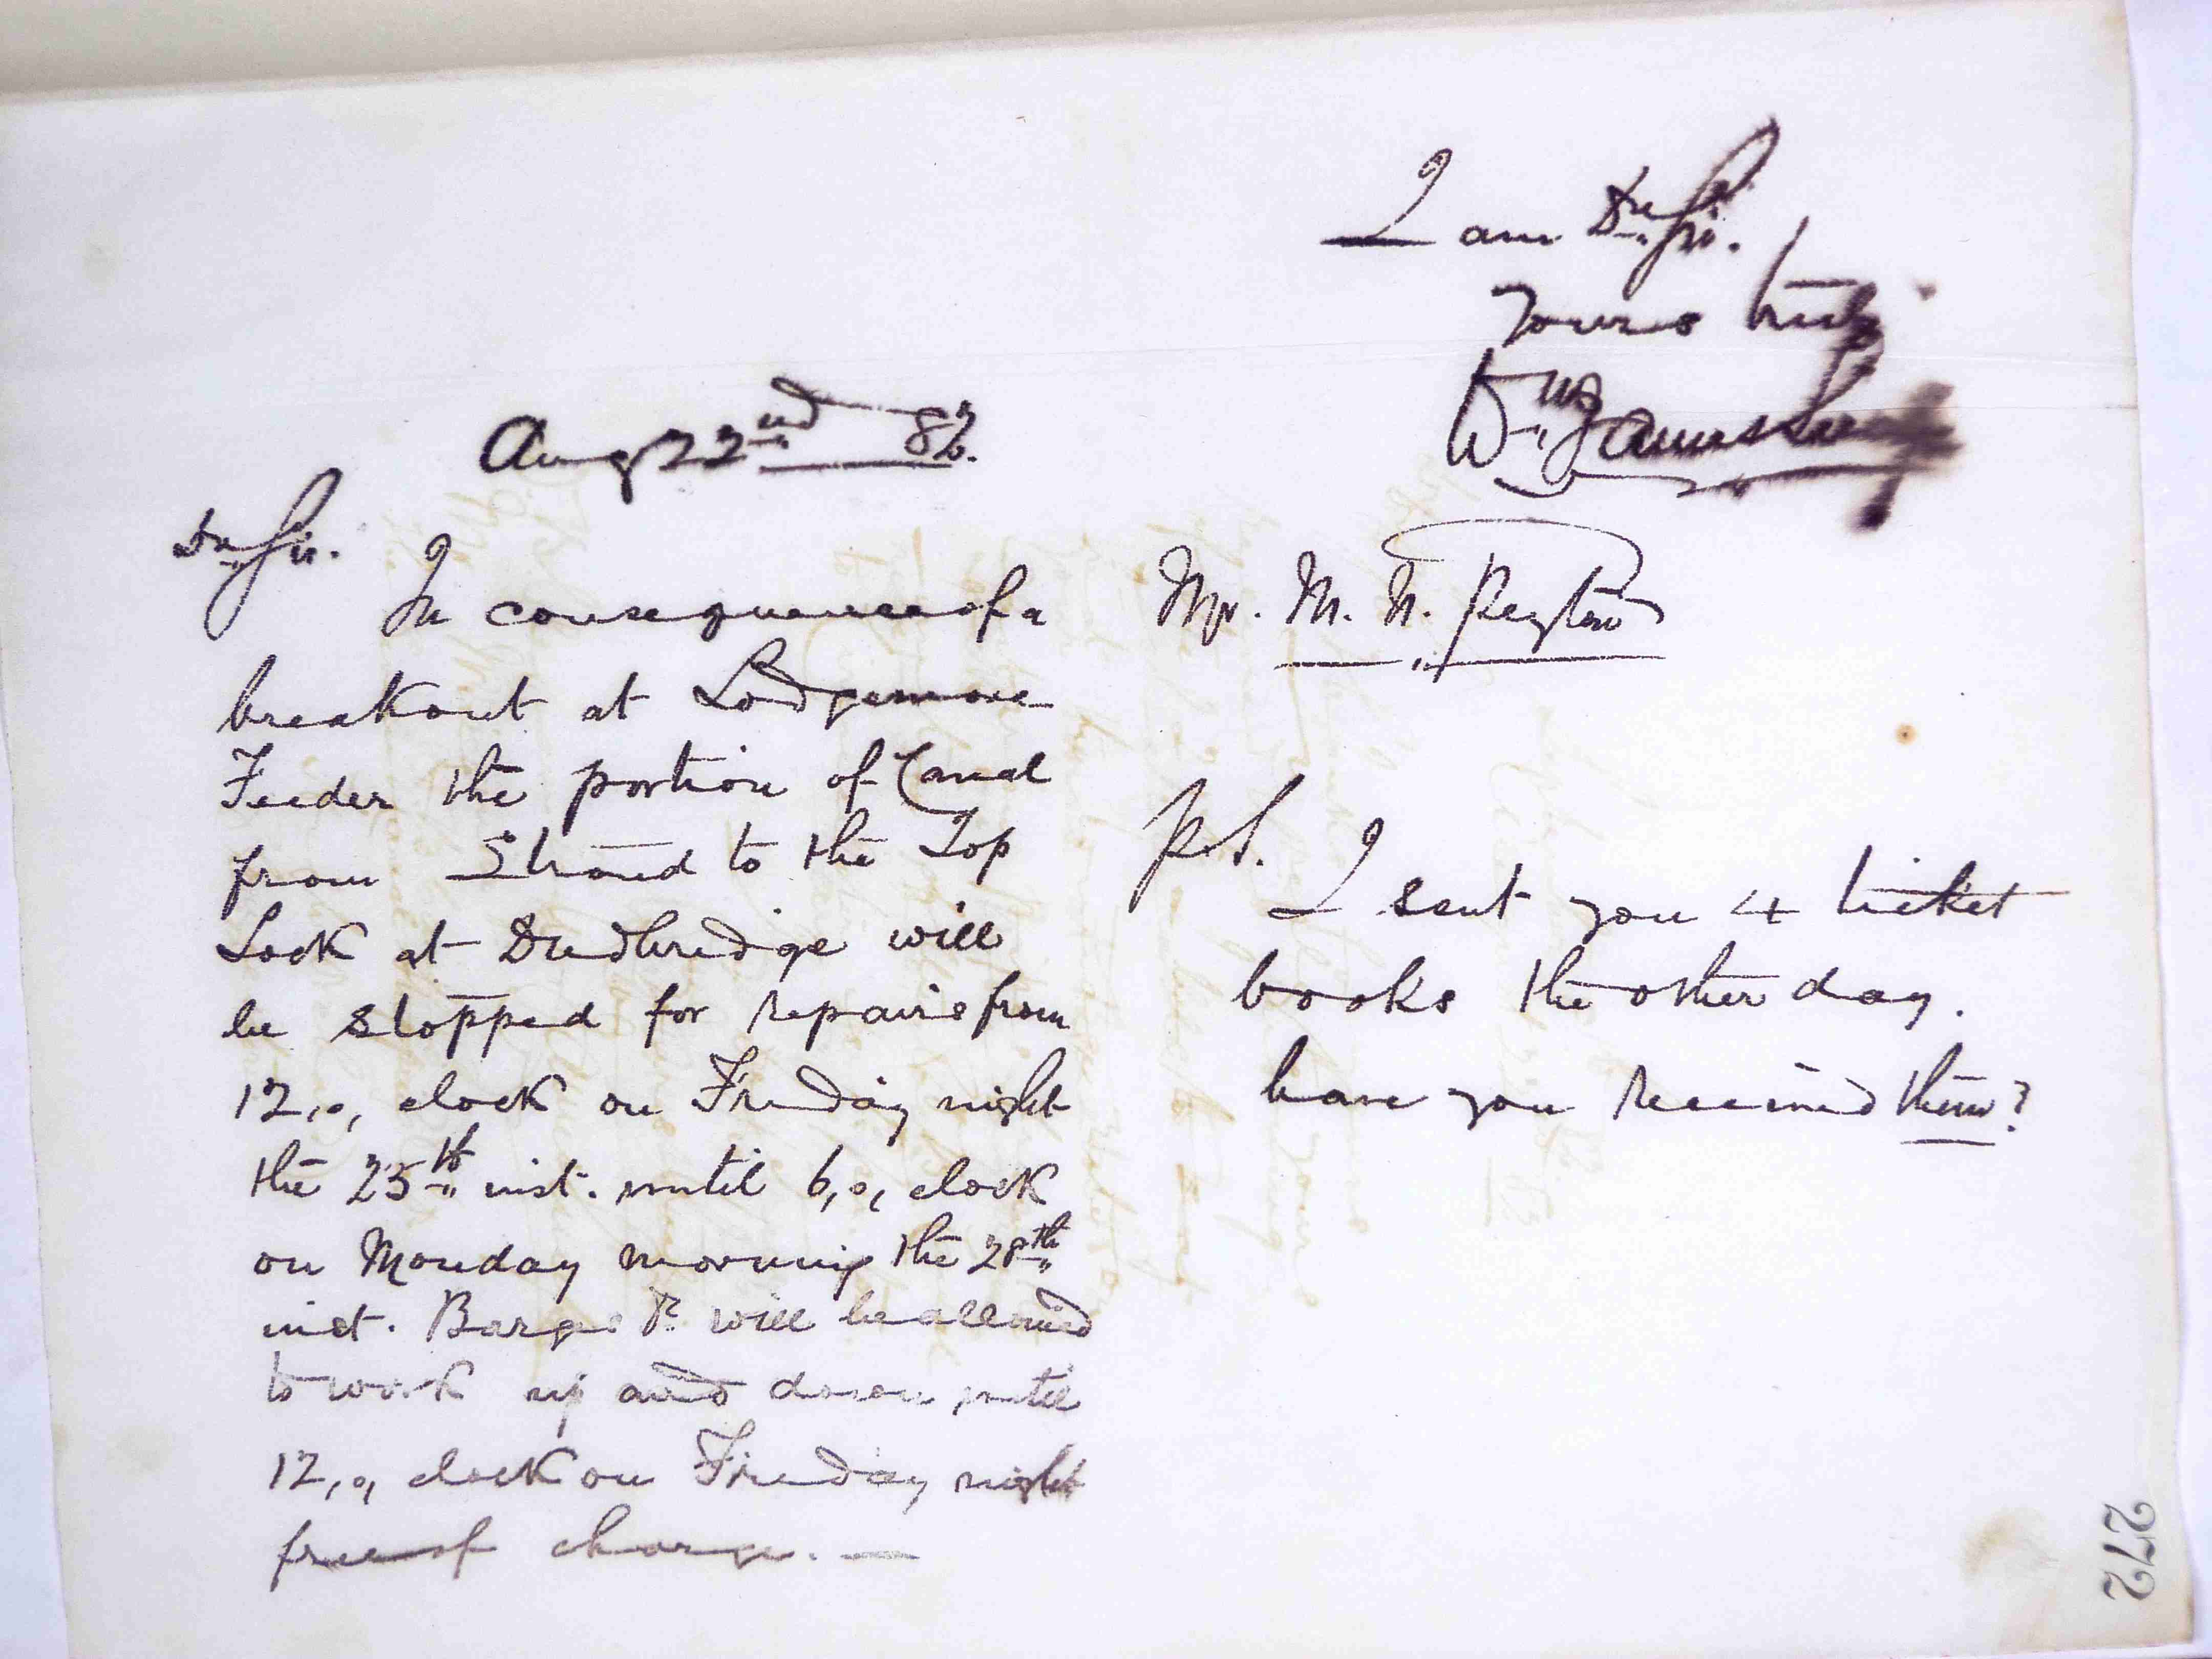 Aug 22nd 82.
Dr Sir.
In consequence of a
breakout at Lodgemore
Feeder the portion of Canal
from Stroud to the Top
Lock at Dudbridge will
be stopped for repairs from
12,o, clock on Friday night
the 25th inst. until 6,o, clock
on Monday morning the 28th
inst. Barges &c will be allowed
to work up and down until
12,o, clock on Friday night
free of charge. —
I am Dr Sir.
Yours truly
Wm
Mr. M. N. Peyton
P.S.
I sent you 4 ticket
books the other day.
have you received them?
272